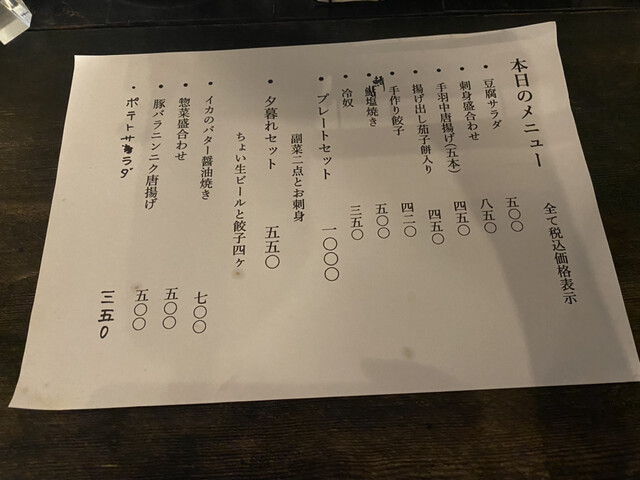 全て税込価格表示
本日のメニュー
・豆腐サラダ 五〇〇
・刺身盛合わせ 八五〇
・手羽中唐揚げ(五本) 四五〇
・揚げ出し茄子餅入り 四五〇
・手作り餃子 四二〇
・塩焼き 五〇〇
・冷奴 三五〇
・プレートセット 一〇〇〇
副菜二点とお刺身
・夕暮れセット 五五〇
ちょい生ビールと餃子四ヶ
・イカのバター醤油焼き 七〇〇
・惣菜盛合わせ 五〇〇
・豚バラニンニク唐揚げ 五〇〇
・ポテトサラダ 三五〇